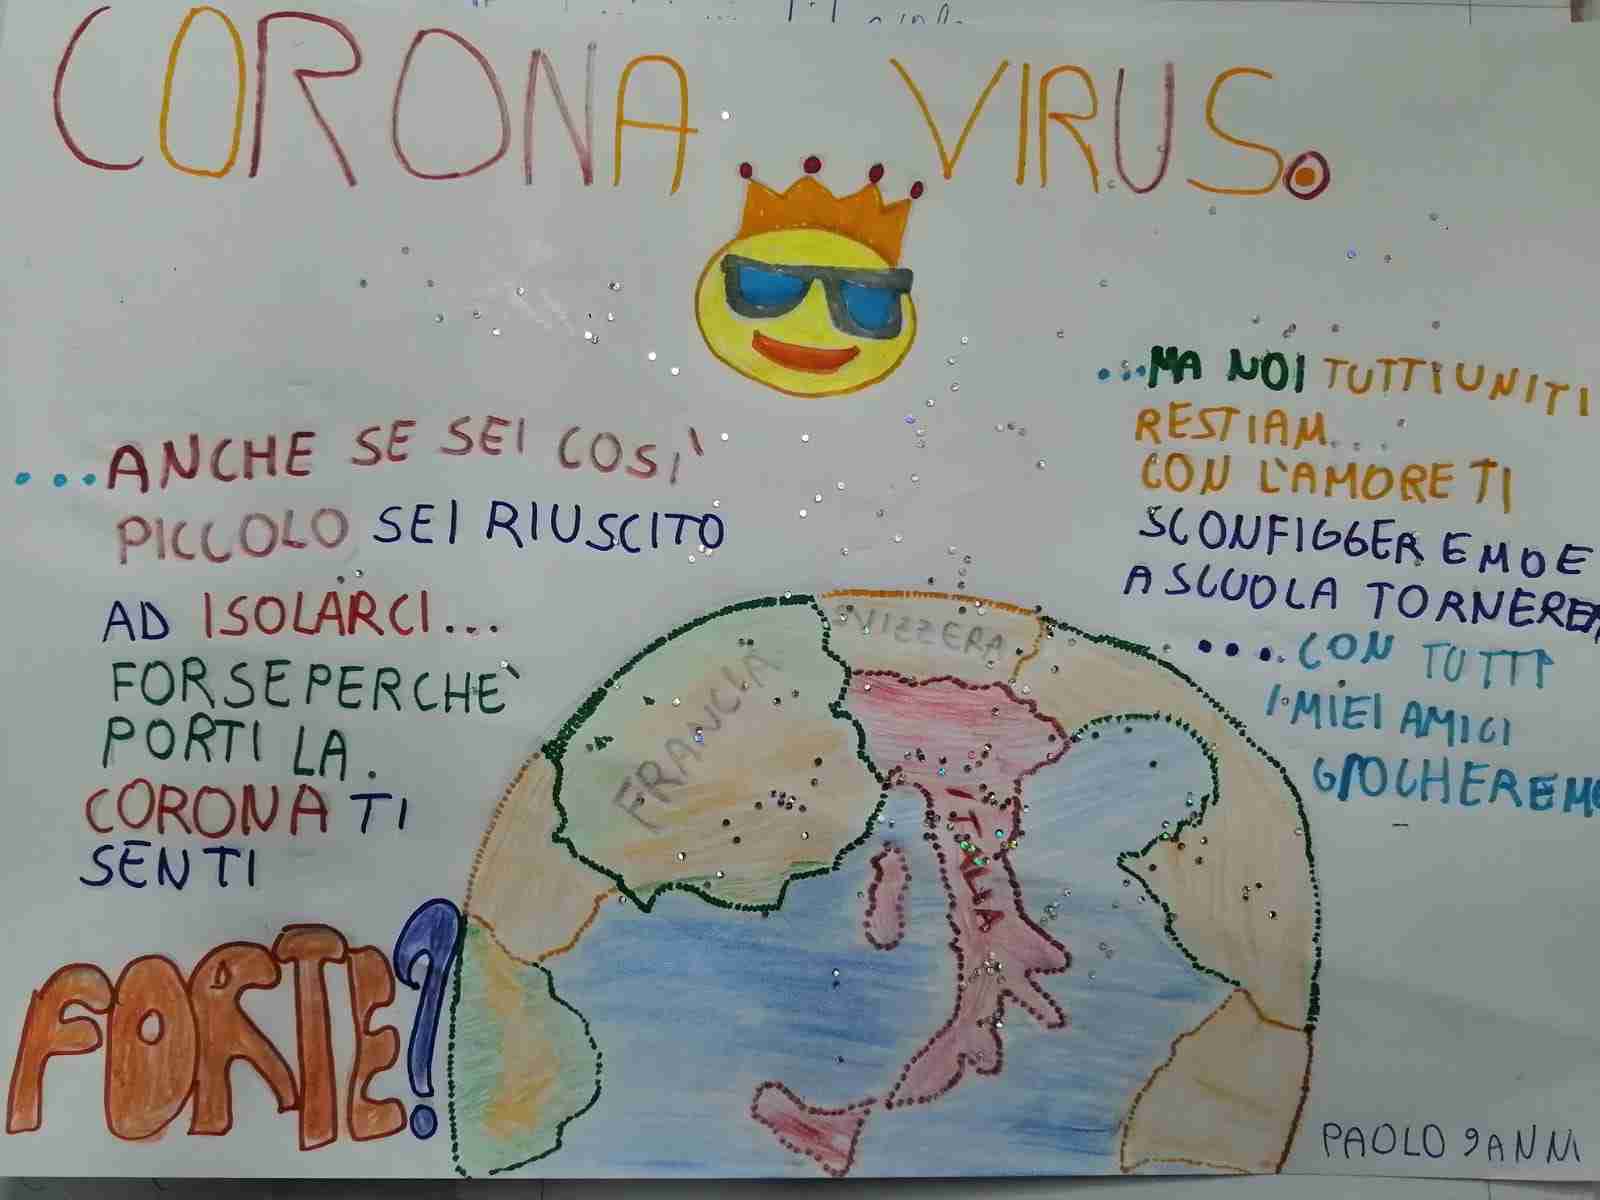 CORONA VIRUS.
...ANCHE SE SEI COSI'
PICCOLO SEI RIUSCITO
AD ISOLARCI...
FORSE PERCHE'
PORTI LA.
CORONA TI
SENTI
FORTE?
...MA NOI TUTTI UNITI
RESTIAM...
CON L'AMORE TI
SCONFIGGEREMO E
A SCUOLA TORNEREM
....CON TUTTI
I MIEI AMICI
GIOCHEREMO
FRANCIA
SVIZZERA
ITALIA
PAOLO 9 ANNI